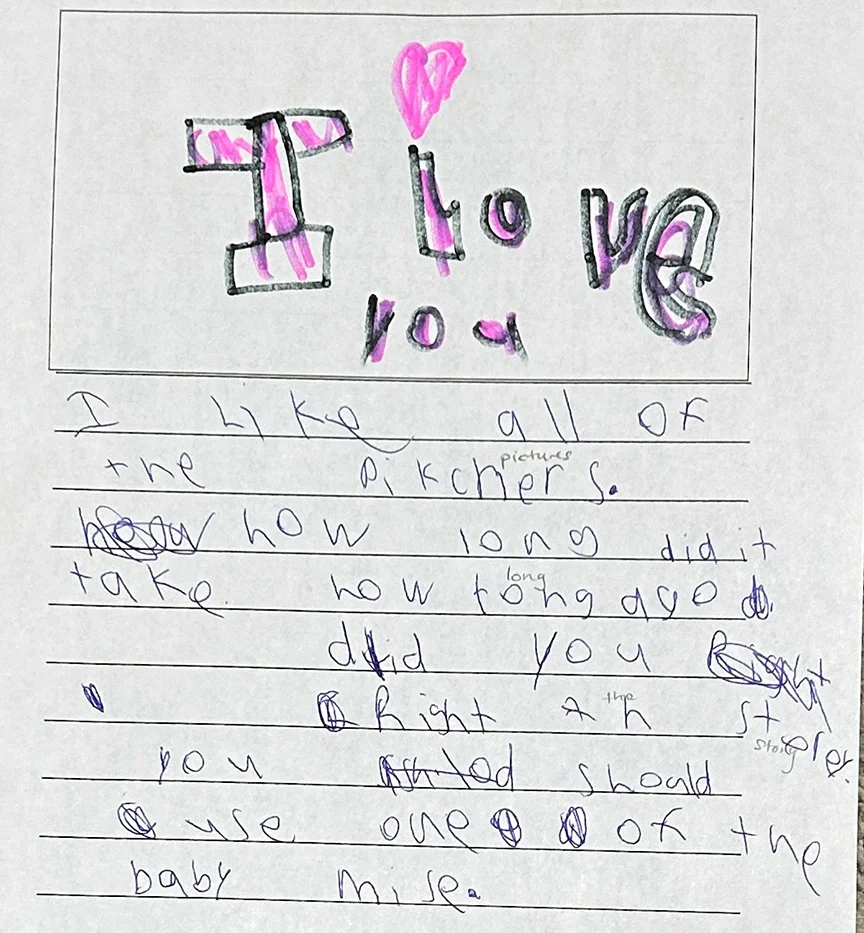 I love
you
I Like all of
the pictures
pikchers.
how how long did it
take. how long
tong ago
did you Right
Right the
th storey.
story
you should
use one of the
baby mise.